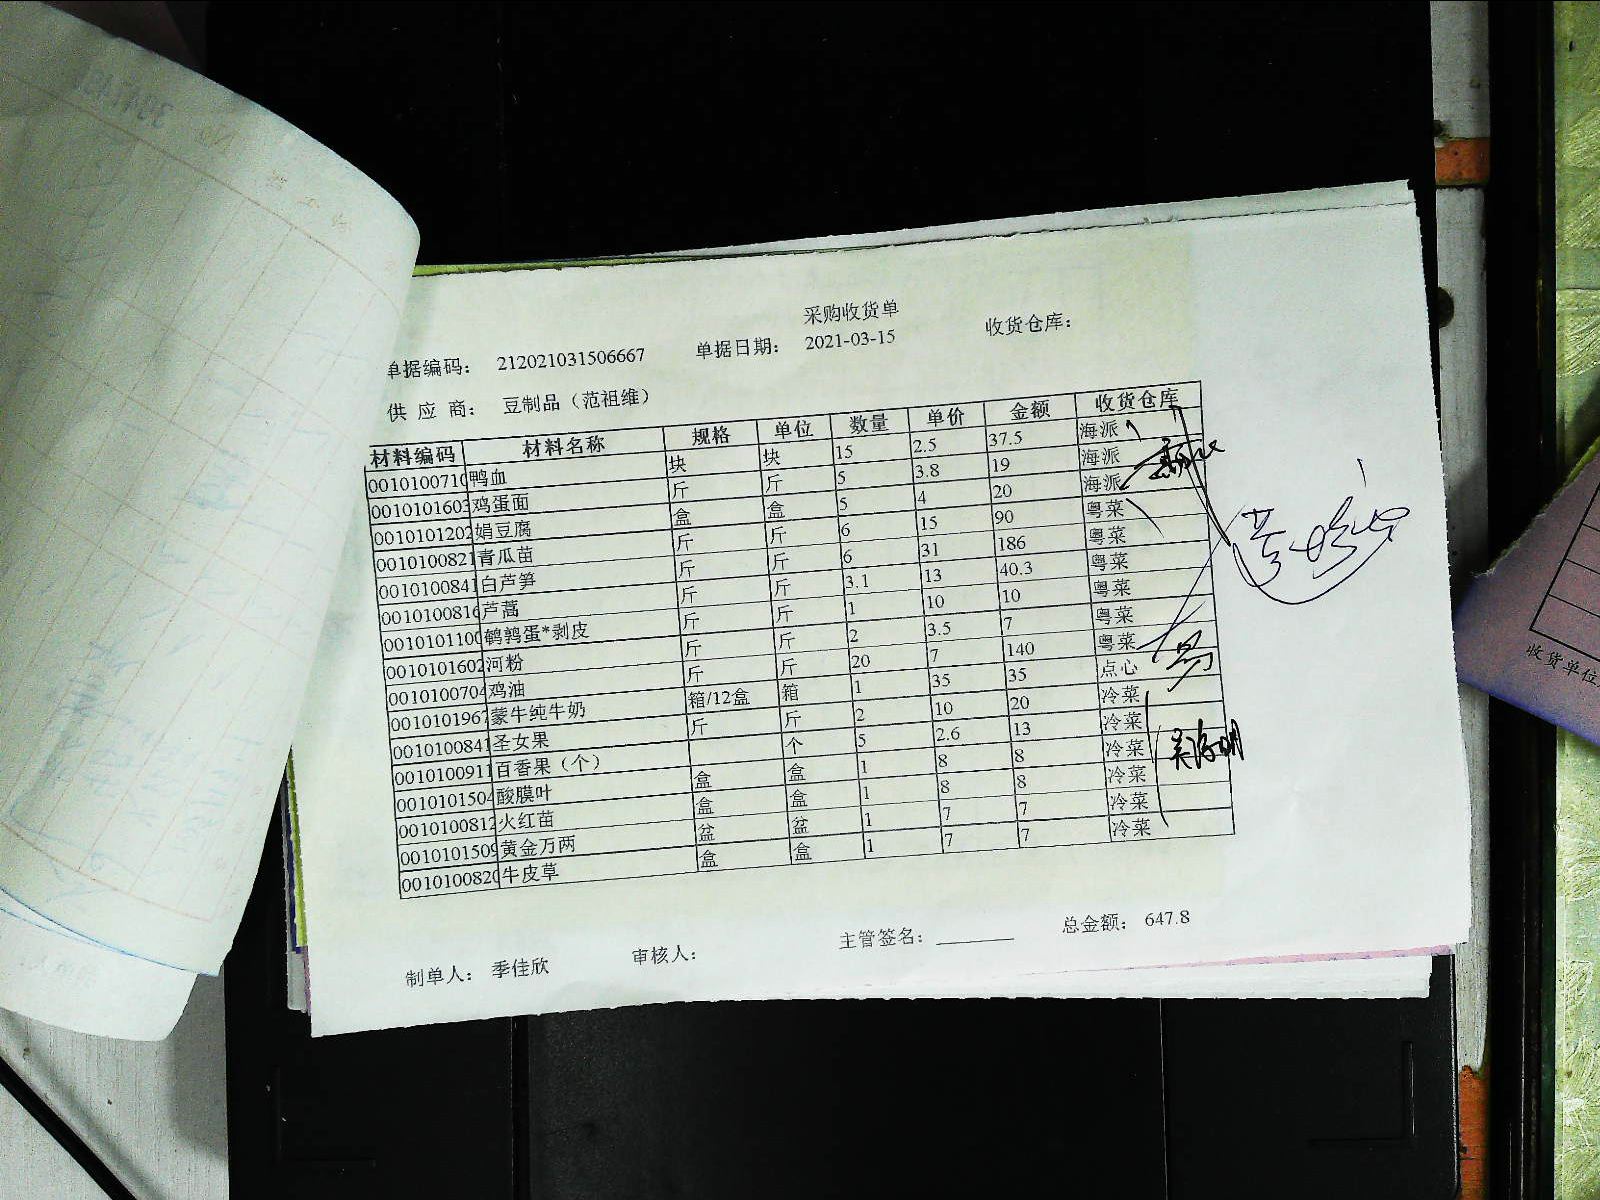 采购收货单
单据编码： 212021031506667 单据日期： 2021-03-15 收货仓库：
供 应 商： 豆制品（范祖维）
材料编码 材料名称 规格 单位 数量 单价 金额 收货仓库
0010100710 鸭血 块 块 15 2.5 37.5 海派
0010101603 鸡蛋面 斤 斤 5 3.8 19 海派
0010101202 娟豆腐 盒 盒 5 4 20 海派
0010100821 青瓜苗 斤 斤 6 15 90 粤菜
0010100841 白芦笋 斤 斤 6 31 186 粤菜
0010100816 芦蒿 斤 斤 3.1 13 40.3 粤菜
0010101100 鹌鹑蛋*剥皮 斤 斤 1 10 10 粤菜
0010101602 河粉 斤 斤 2 3.5 7 粤菜
0010100704 鸡油 斤 斤 20 7 140 粤菜
0010101967 蒙牛纯牛奶 箱/12盒 箱 1 35 35 点心
0010100841 圣女果 斤 斤 2 10 20 冷菜
0010100911 百香果（个） 个 5 2.6 13 冷菜
0010101504 酸膜叶 盒 盒 1 8 8 冷菜
0010100812 火红苗 盒 盒 1 8 8 冷菜
0010101509 黄金万两 盆 盆 1 7 7 冷菜
0010100820 牛皮草 盒 盒 1 7 7 冷菜
制单人： 季佳欣 审核人： 主管签名： 总金额： 647.8
收货单位